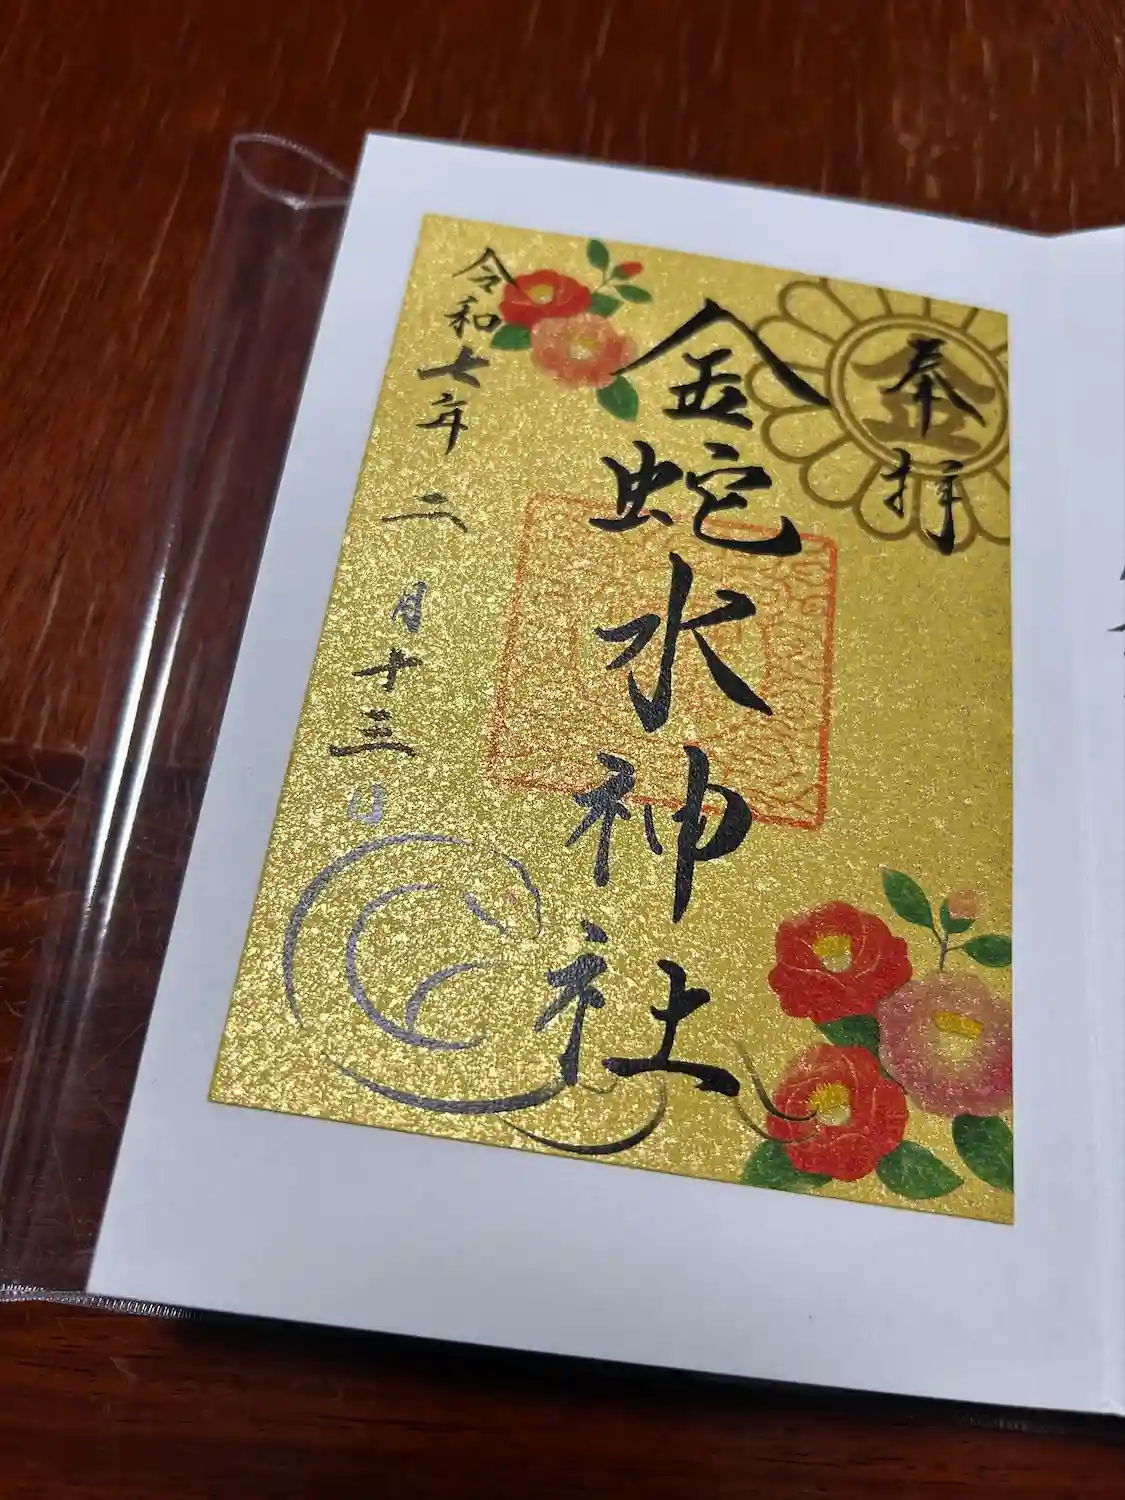 奉拝
金蛇水神社
令和七年二月十三日